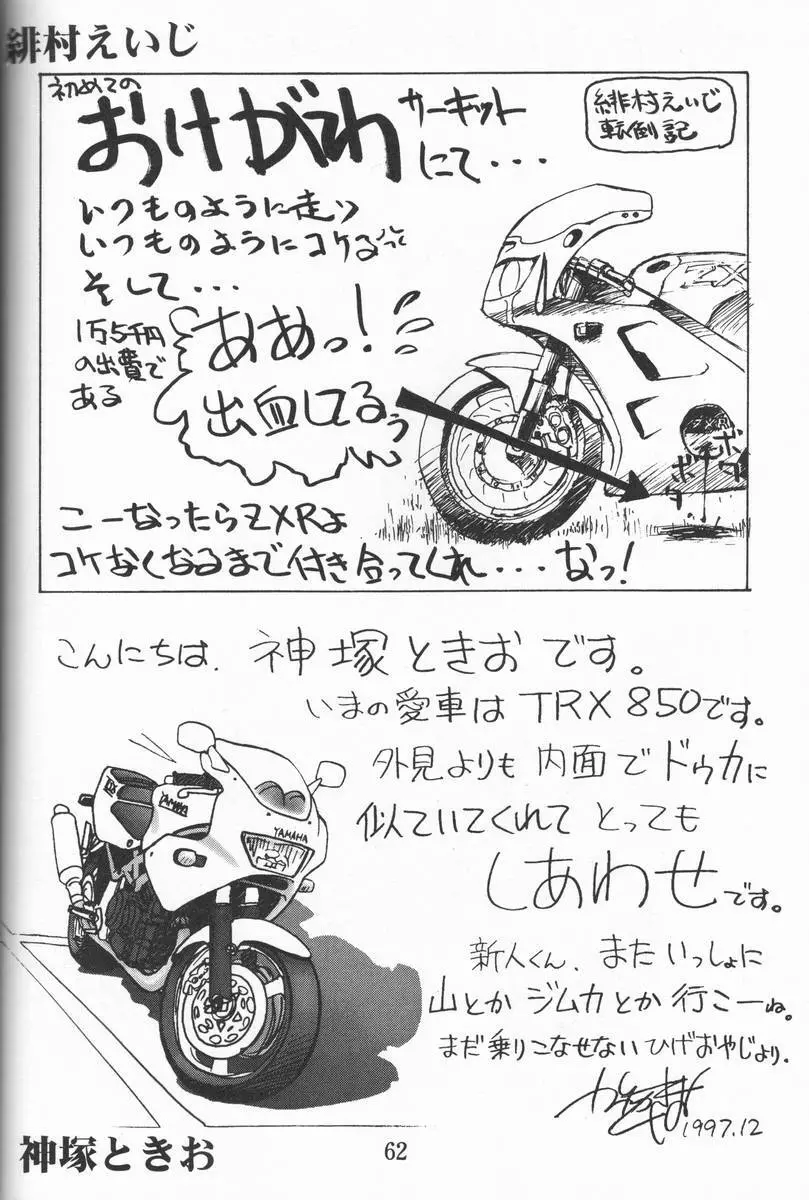 緋村えいじ
初めての
おけがわ サーキット
にて・・・
緋村えいじ
転倒記
いつものように走り
いつものようにコケるって
そして・・・
1万5千円
の出費で
ある
ああっ!
出血してるぅ
ZX
ZXR
ボタ
ボタ
こーなったらZXRよ
コケなくなるまで付き合ってくれ・・・なっ!
こんにちは、神塚ときおです。
いまの愛車はTRX850です。
外見よりも内面でドゥカに
似ていてくれてとっても
しあわせです。
新人くん、またいっしょに
山とかジムカとか行こーね。
まだ乗りこなせないひげおやじより。
1997.12
YAMAHA
YAMAHA
神塚ときお
62